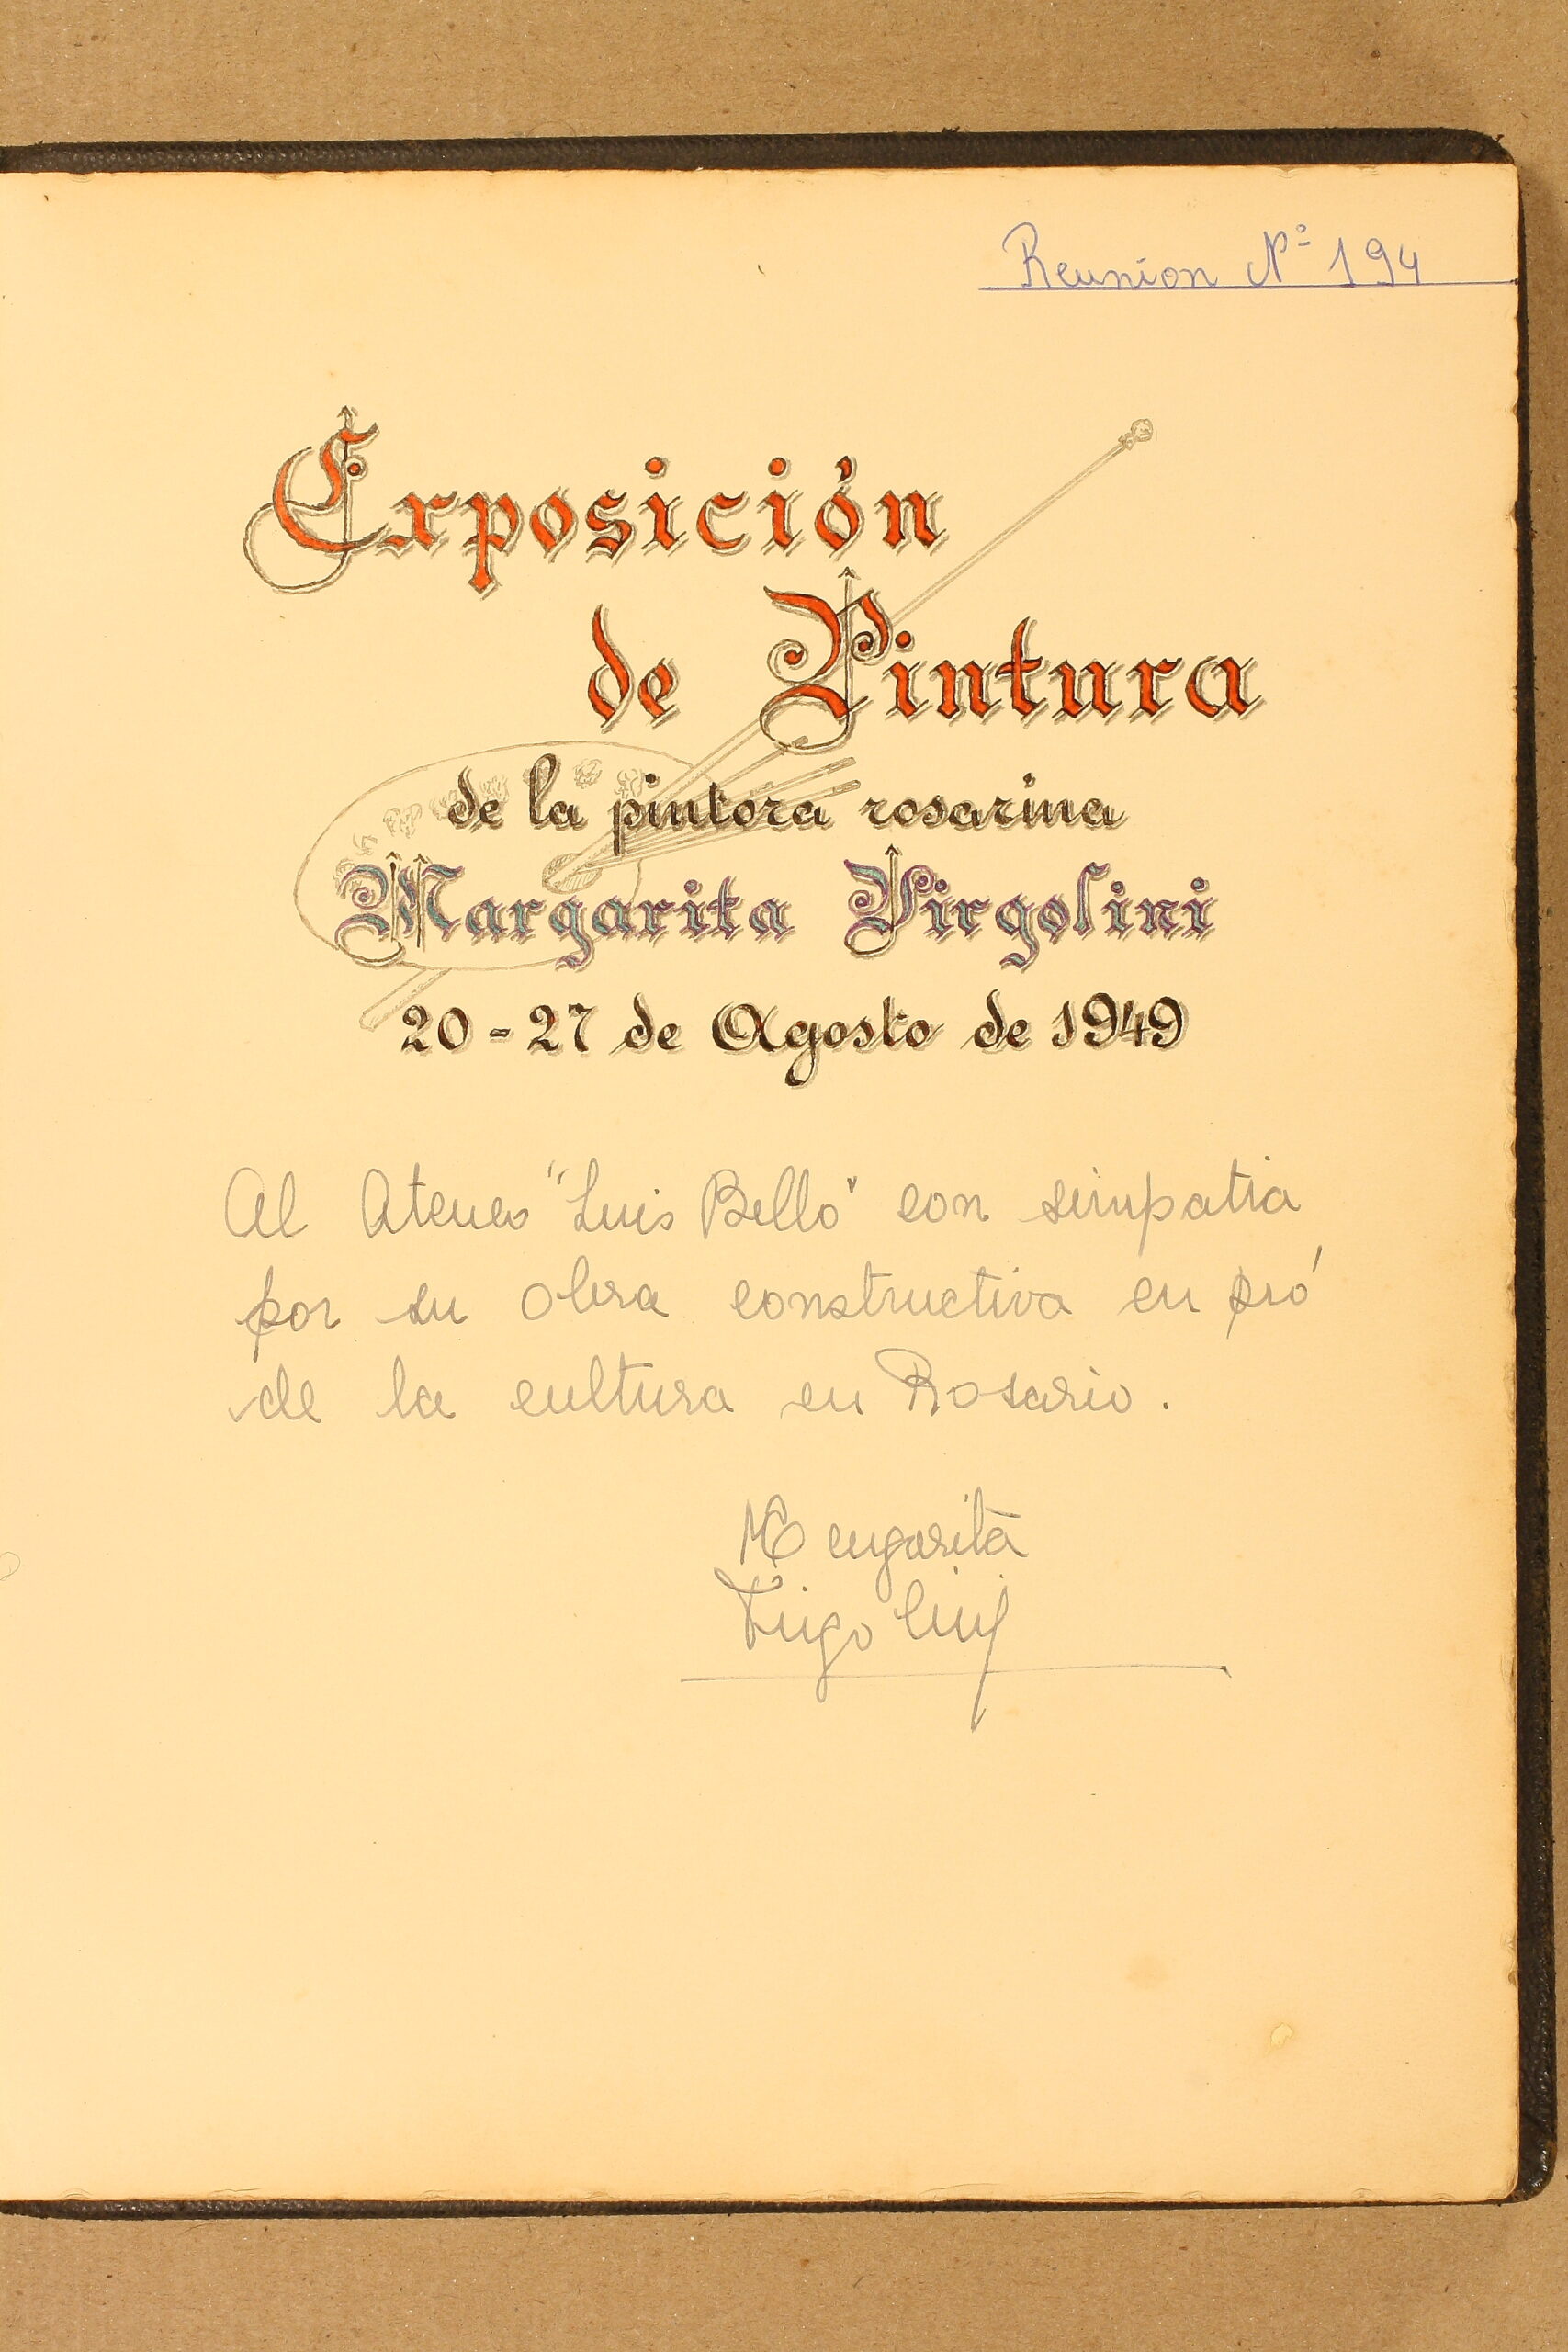 Reunion Nº 194
Exposición
de Pintura
de la pintora rosarina
Margarita Virgolini
20-27 de Agosto de 1949
Al Ateneo "Luis Bello" con simpatia
por su obra constructiva en pró
de la cultura en Rosario.
Margarita
Virgolini